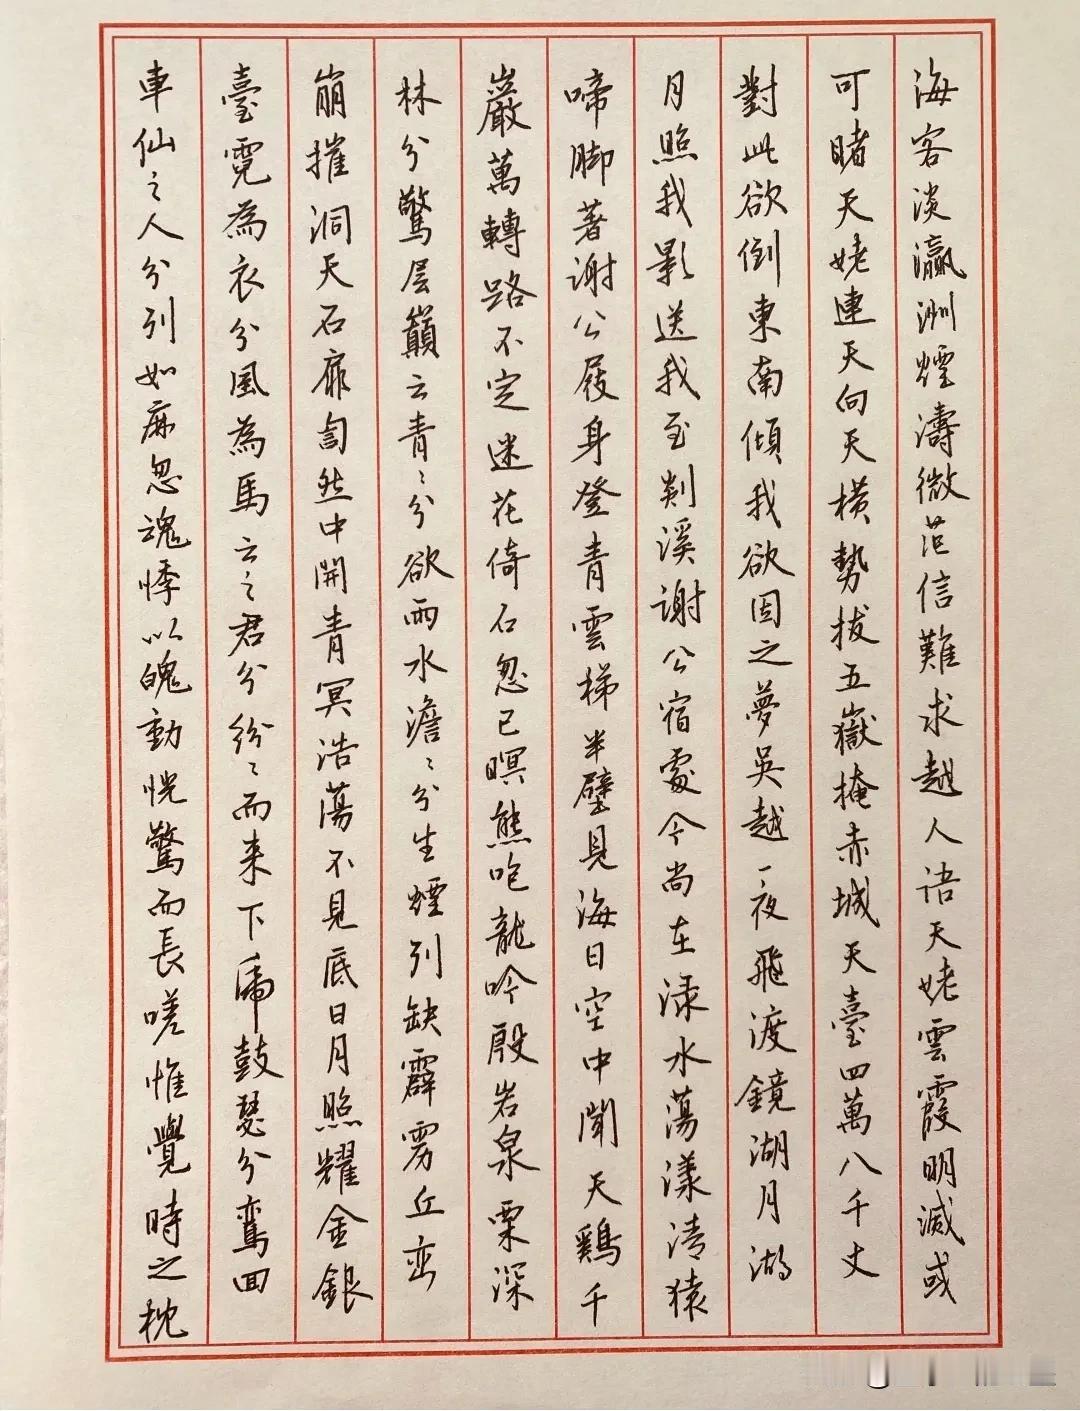 海客淡瀛洲煙濤微茫信難求越人語天姥雲霞明滅或
可睹天姥連天向天橫勢拔五嶽掩赤城天臺四萬八千丈
對此欲倒東南傾我欲因之夢吳越一夜飛渡鏡湖月湖
月照我影送我至剡溪謝公宿處今尚在淥水蕩漾清猿
啼脚著謝公屐身登青雲梯半壁見海日空中聞天鷄千
巖萬轉路不定迷花倚石忽已暝熊咆龍吟殷岩泉栗深
林兮驚层巔云青〻兮欲雨水澹〻兮生煙列缺霹雳丘峦
崩摧洞天石扉訇然中開青冥浩蕩不見底日月照耀金銀
臺霓為衣兮風為馬云之君兮紛〻而来下虎鼓瑟兮鸞回
車仙之人兮列如麻忽魂悸以魄動恍驚而長嗟惟覺時之枕